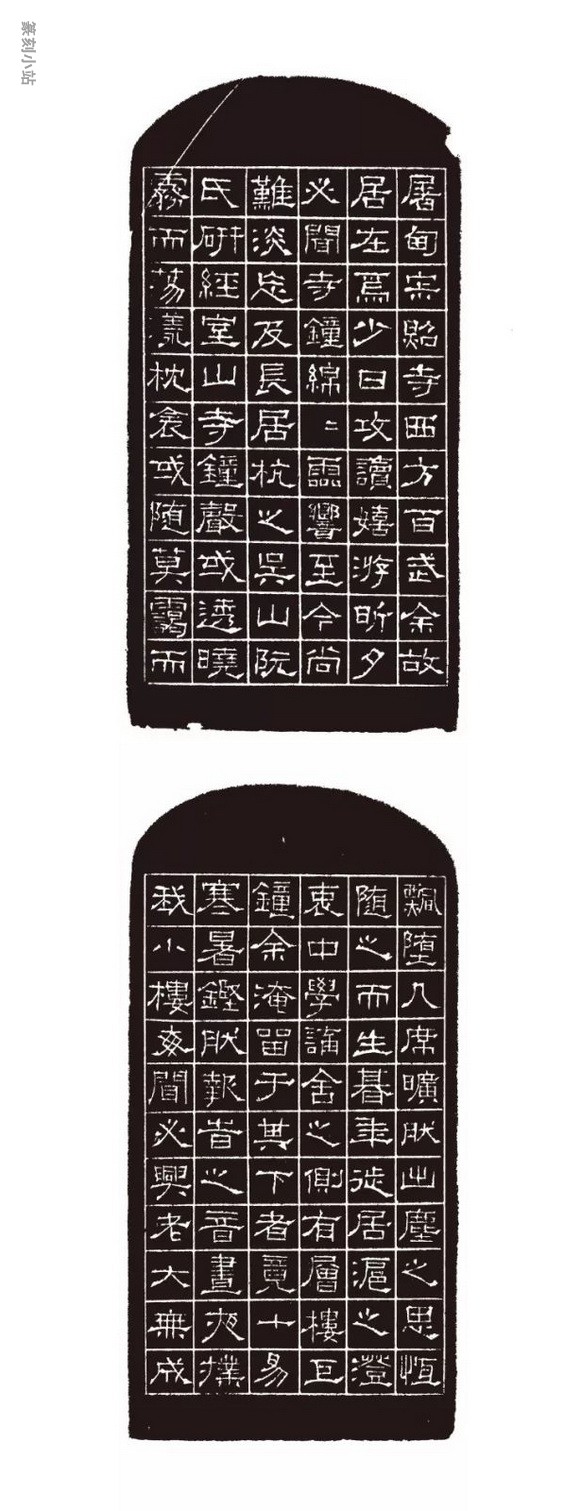 篆刻小站
屠甸寂照寺西方百武余故
居在焉少日攻讀嬉游昕夕
必聞寺鐘綿〻霝響至今尚
難淡忘及長居杭之吳山阮
氏研經室山寺鐘聲或透曉
霧而蕩漾枕衾或随莫靄而
飄墮几席曠肰出塵之思恒
随之而生暮年徙居滬之澄
衷中學誦舍之側有層樓巨
鐘余淹留于其下者竟十易
寒暑鏗肰報昔之音晝夜撲
我小樓每聞必興老大無成